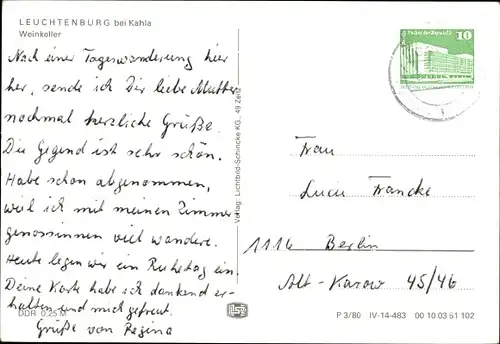 LEUCHTENBURG bei Kahla
Weinkeller
Nach einer Tageswanderung hier
her, sende ich Dir liebe Mutter
nochmal herzliche Grüße.
Die Gegend ist sehr schön.
Habe schon abgenommen,
weil ich mit meinen Zimmer-
genossinnen viel wandere.
Heute legen wir ein Ruhetag ein.
Deine Karte habe ich dankend er-
halten und mich gefreut.
Grüße von Regina
DDR 0,25 M
Verlag: Lichtbild-Schincke KG, 49 Zeitz
Palast der Republik
10
Frau
Lucie Francke
1116 Berlin
Alt-Karow 45/46
P 3/80 IV-14-483 00 10 03 51 102